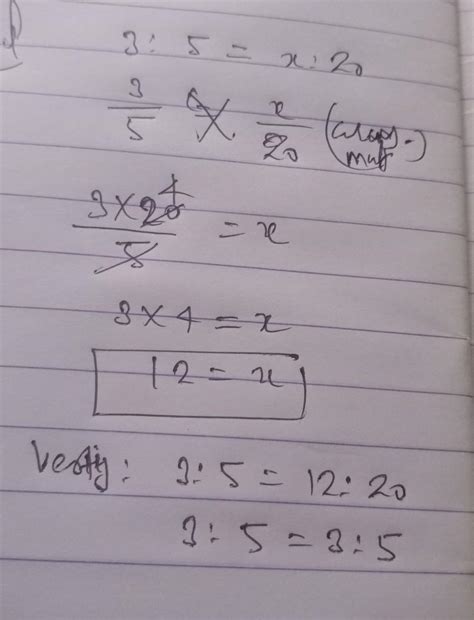 3 : 5 = x : 20
3/5 x/20 (cross-
3 × 20/5 4 = x
3 × 4 = x
12 = x
Verify: 3 : 5 = 12 : 20
3 : 5 = 3 : 5